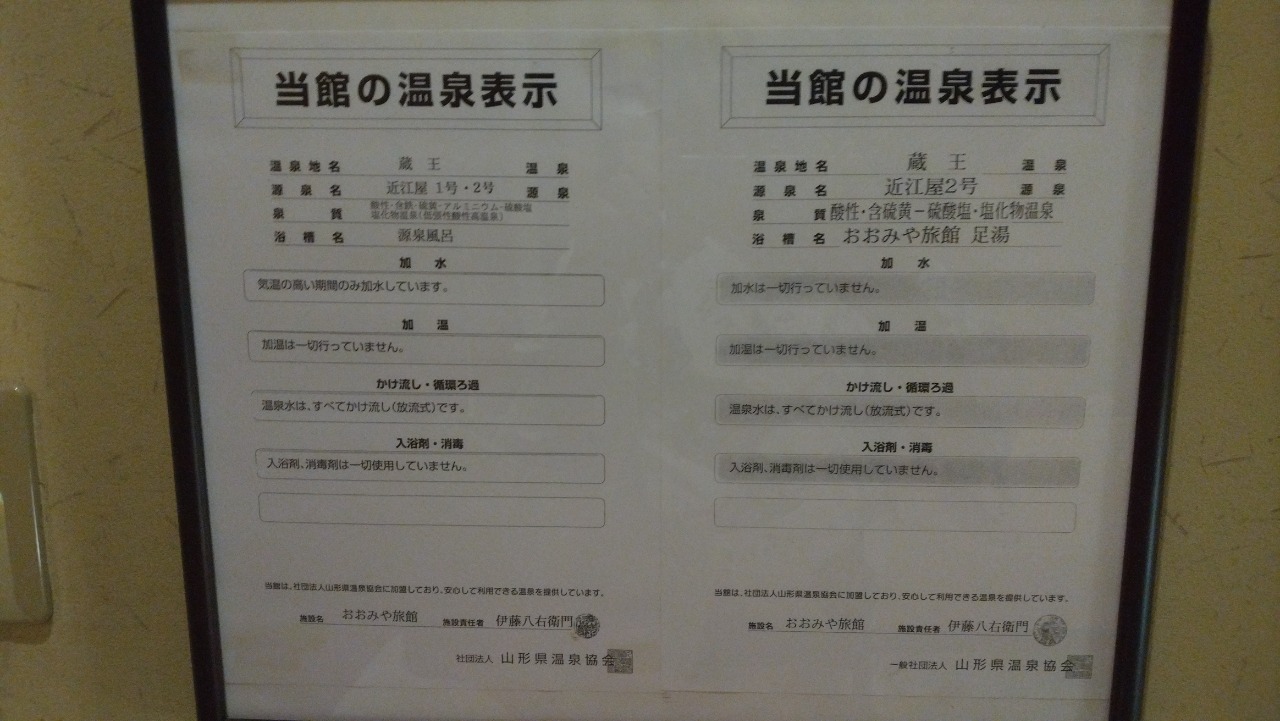 当館の温泉表示
温泉地名 蔵王 温泉
源泉名 近江屋 1号・2号 源泉
泉質 酸性・含鉄・硫黄-アルミニウム-硫酸塩
塩化物温泉(低張性酸性高温泉)
浴槽名 源泉風呂
加水
気温の高い期間のみ加水しています。
加温
加温は一切行っていません。
かけ流し・循環ろ過
温泉水は、すべてかけ流し(放流式)です。
入浴剤・消毒
入浴剤、消毒剤は一切使用していません。
当館は、社団法人山形県温泉協会に加盟しており、安心して利用できる温泉を提供しています。
施設名 おおみや旅館 施設責任者 伊藤八右衛門
社団法人 山形県温泉協会
当館の温泉表示
温泉地名 蔵王 温泉
源泉名 近江屋2号 源泉
泉質 酸性・含硫黄-硫酸塩・塩化物温泉
浴槽名 おおみや旅館 足湯
加水
加水は一切行っていません。
加温
加温は一切行っていません。
かけ流し・循環ろ過
温泉水は、すべてかけ流し(放流式)です。
入浴剤・消毒
入浴剤、消毒剤は一切使用していません。
当館は、社団法人山形県温泉協会に加盟しており、安心して利用できる温泉を提供しています。
施設名 おおみや旅館 施設責任者 伊藤八右衛門
一般社団法人 山形県温泉協会